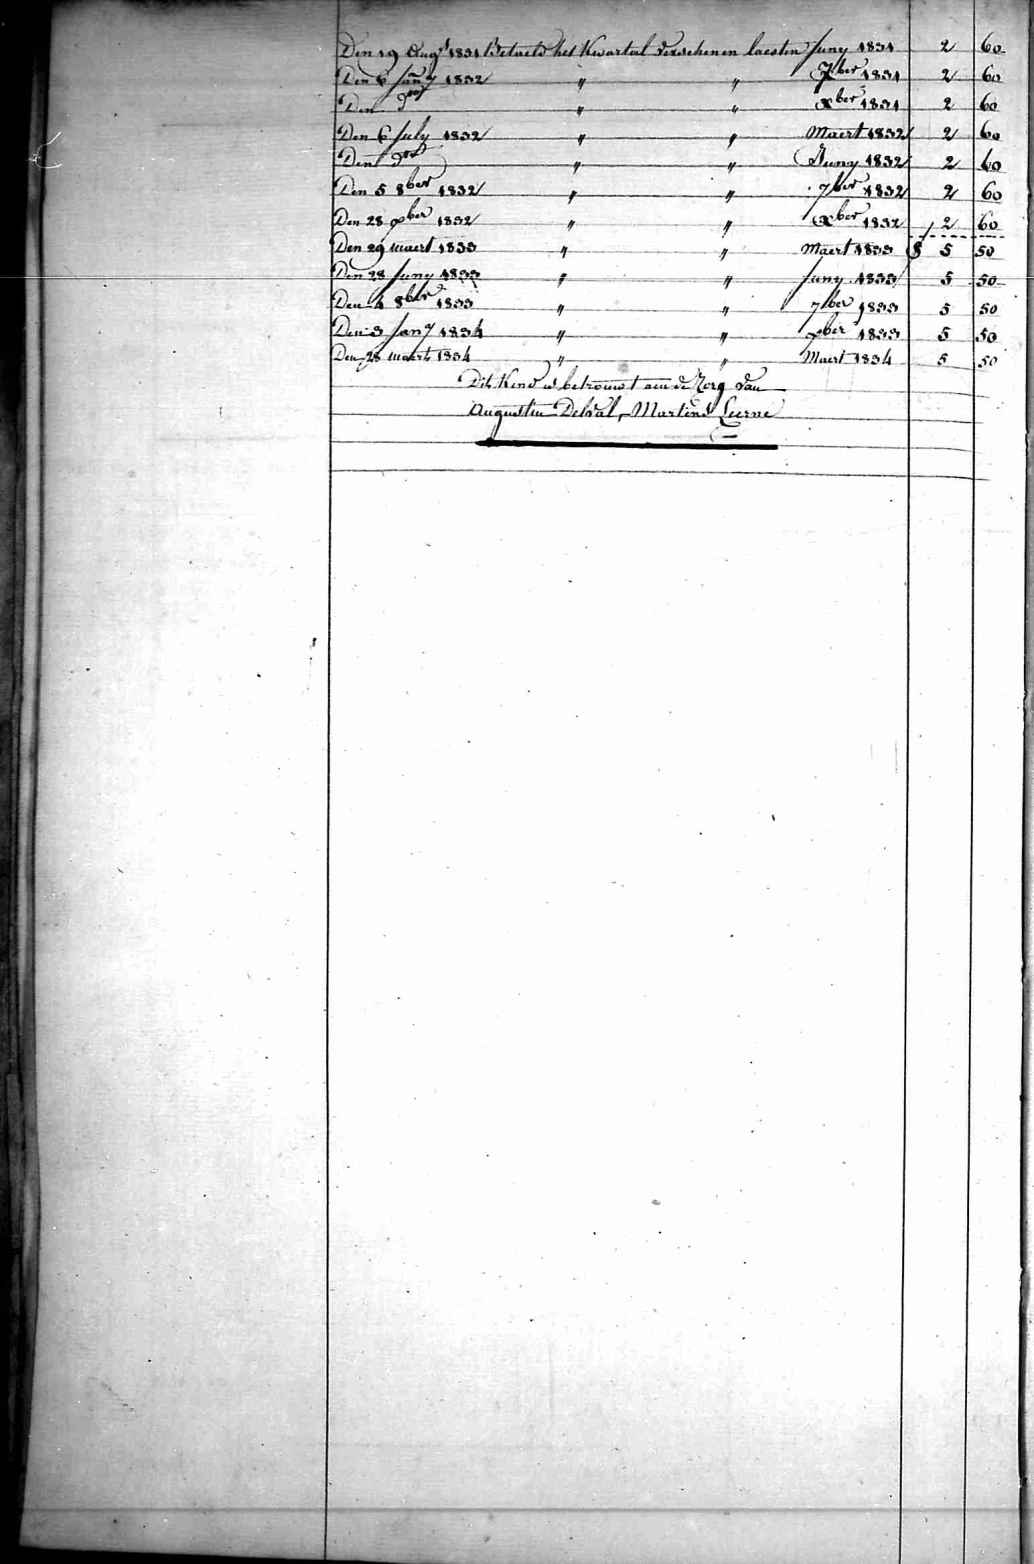 Den 19 Augt 1831 Betaeld het Kwartael verschenen laesten Juny 1831 2 60
Den 6 Jany 1832 " " 7ber 1831 2 60
Den do " " Xber 1831 2 60
Den 6 July 1832 " " Maert 1832 2 60
Den do " " Juny 1832 2 60
Den 5 8ber 1832 " " 7ber 1832 2 60
Den 28 Xber 1832 " " Xber 1832 2 60
Den 29 maert 1833 " " Maert 1833 5 50
Den 28 Juny 1833 " " Juny 1833 5 50
Den 4 8ber 1833 " " 7ber 1833 5 50
Den 3 Jany 1834 " " Xber 1833 5 50
Den 28 maert 1834 " " Maert 1834 5 50
Dit Kind is betrouwt aen de Zorg van
Augustin Martens Leerne